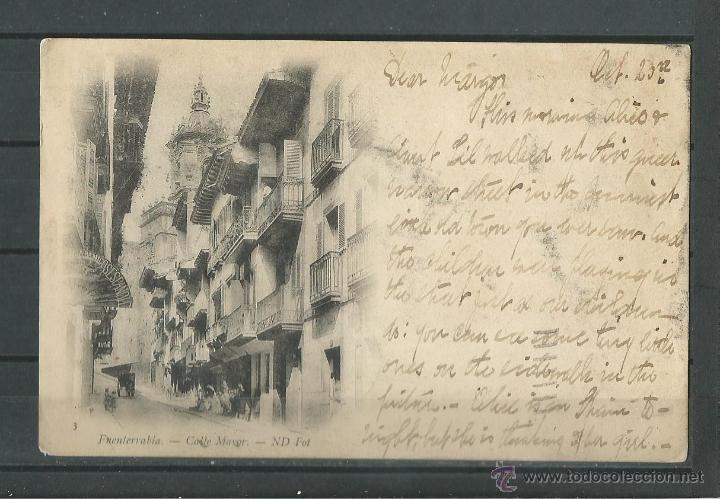 Dear Margot Oct. 23rd
This morning Alice &
Aunt Lil walked in this queer
narrow street in the funniest
little old town you ever saw. And
the children were playing in
the street just
you can see some tiny little
ones on the sidewalk in the
picture. — Alice is in to-
night, but she is thinking of her girl. —
3
Fuenterrabía. — Calle Mayor. — ND Fot
www.todocoleccion.net